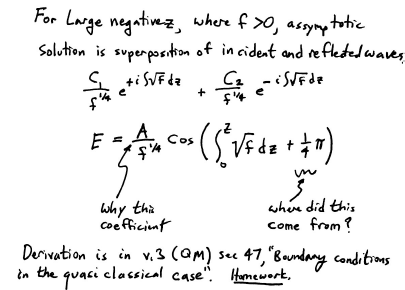 For Large negative z, where f > 0, assymptotic
solution is superposition of incident and reflected waves,
C₁/f^¼ e^{+i∫√f dz} + C₂/f^¼ e^{-i∫√f dz}
E = A/f^¼ cos(∫₀^z √f dz + ¼π)
why this coefficient
where did this come from?
Derivation is in v.3 (QM) sec 47, "Boundary conditions
in the quasi classical case". Homework.